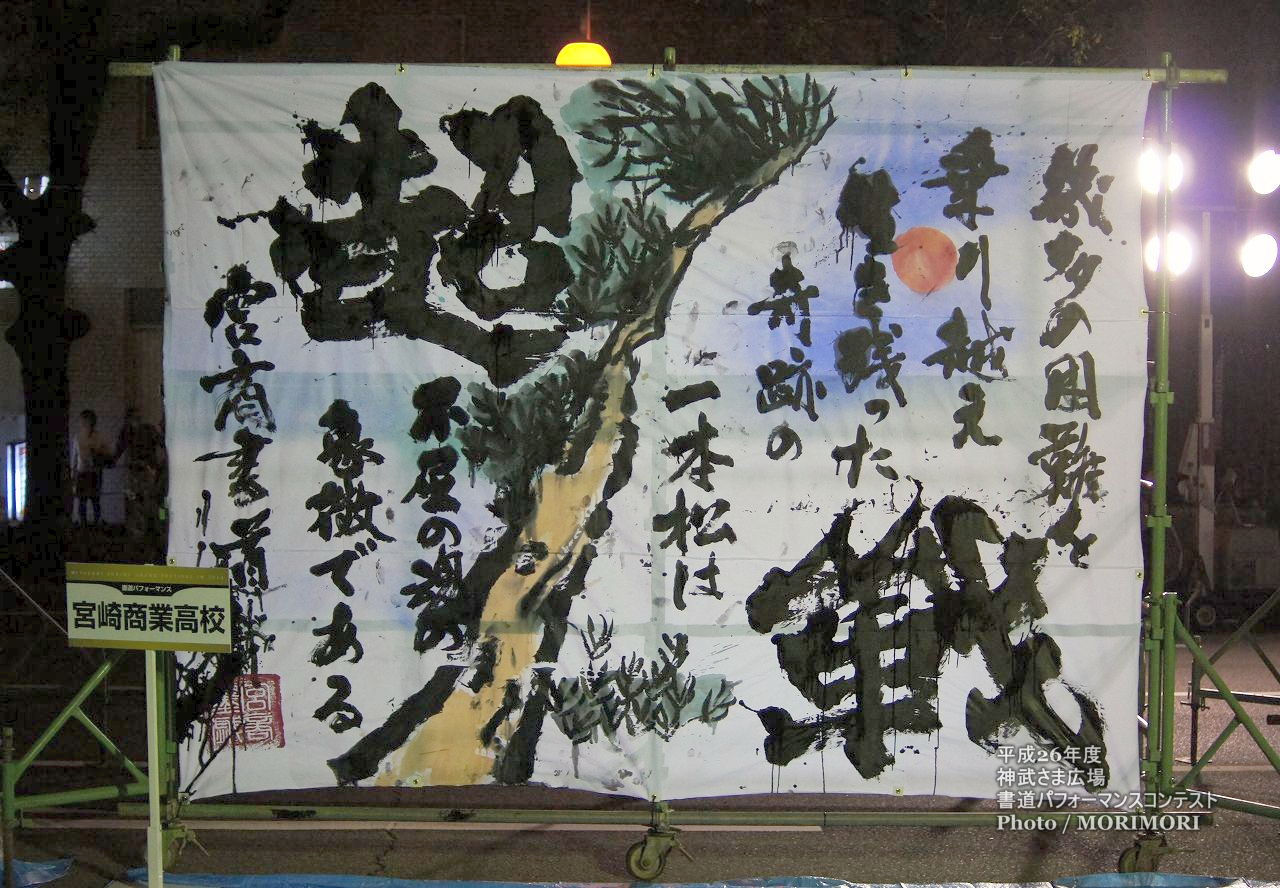 幾多の困難を
乗り越え
生き残った
奇跡の
一本松は
起
不屈の魂の
象徴である
宮商書道部
書道パフォーマンス
宮崎商業高校
平成26年度
神武さま広場
書道パフォーマンスコンテスト
Photo / MORIMORI